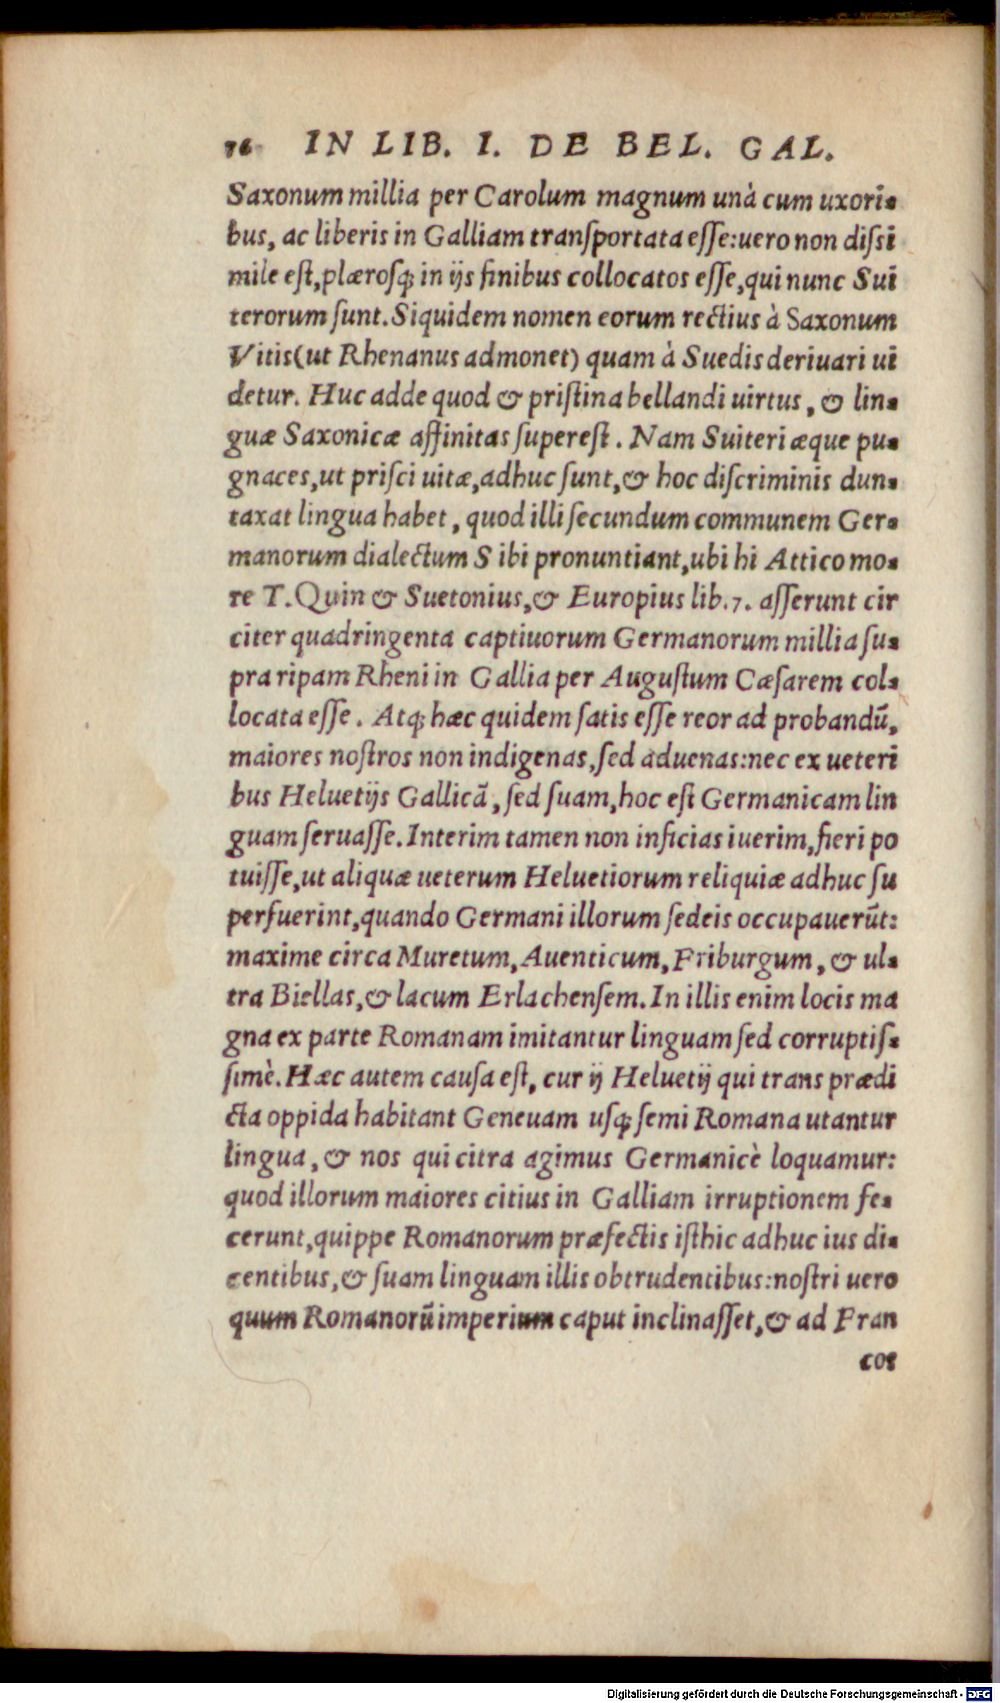 76 IN LIB. I. DE BEL. GAL.
Saxonum millia per Carolum magnum unà cum uxori-
bus, ac liberis in Galliam tranſportata eſſe: uero non diſsi
mile eſt, plæroſq; in ijs finibus collocatos eſſe, qui nunc Sui
terorum ſunt. Siquidem nomen eorum rectius à Saxonum
Vitis (ut Rhenanus admonet) quam à Suedis deriuari ui
detur. Huc adde quod & priſtina bellandi uirtus, & lin-
guæ Saxonicæ affinitas ſupereſt. Nam Suiteri æque pu-
gnaces, ut priſci uitæ, adhuc ſunt, & hoc diſcriminis dun-
taxat lingua habet, quod illi ſecundum communem Ger-
manorum dialectum S ibi pronuntiant, ubi hi Attico mo-
re T. Quin & Suetonius, & Europius lib. 7. aſſerunt cir
citer quadringenta captiuorum Germanorum millia ſu-
pra ripam Rheni in Gallia per Auguſtum Cæſarem col-
locata eſſe. Atq; hæc quidem ſatis eſſe reor ad probandũ,
maiores noſtros non indigenas, ſed aduenas: nec ex ueteri
bus Heluetijs Gallicã, ſed ſuam, hoc eſt Germanicam lin
guam ſeruaſſe. Interim tamen non inficias iuerim, fieri po
tuiſſe, ut aliquæ ueterum Heluetiorum reliquiæ adhuc ſu
perfuerint, quando Germani illorum ſedeis occupauerũt:
maxime circa Muretum, Auenticum, Friburgum, & ul-
tra Biellas, & lacum Erlachenſem. In illis enim locis ma
gna ex parte Romanam imitantur linguam ſed corruptiſ-
ſimè. Hæc autem cauſa eſt, cur ij Heluetij qui trans prædi
cta oppida habitant Geneuam uſq; ſemi Romana utantur
lingua, & nos qui citra agimus Germanicè loquamur:
quod illorum maiores citius in Galliam irruptionem fe-
cerunt, quippe Romanorum præfectis iſthic adhuc ius di-
centibus, & ſuam linguam illis obtrudentibus: noſtri uero
quum Romanorũ imperium caput inclinaſſet, & ad Fran
cos
Digitalisierung gefördert durch die Deutsche Forschungsgemeinschaft - DFG